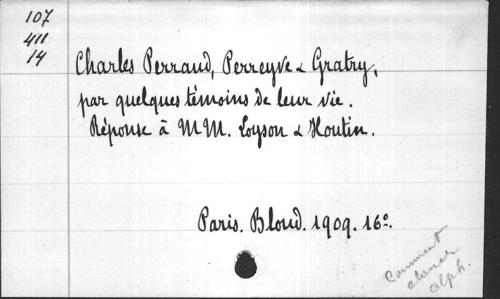 107
411
14
Charles Perraud, Perreyve & Gratry,
par quelques témoins de leur vie.
Réponse à MM. Loyson & Houtin.
Paris. Bloud. 1909. 16º.
Comment
classer
alph.